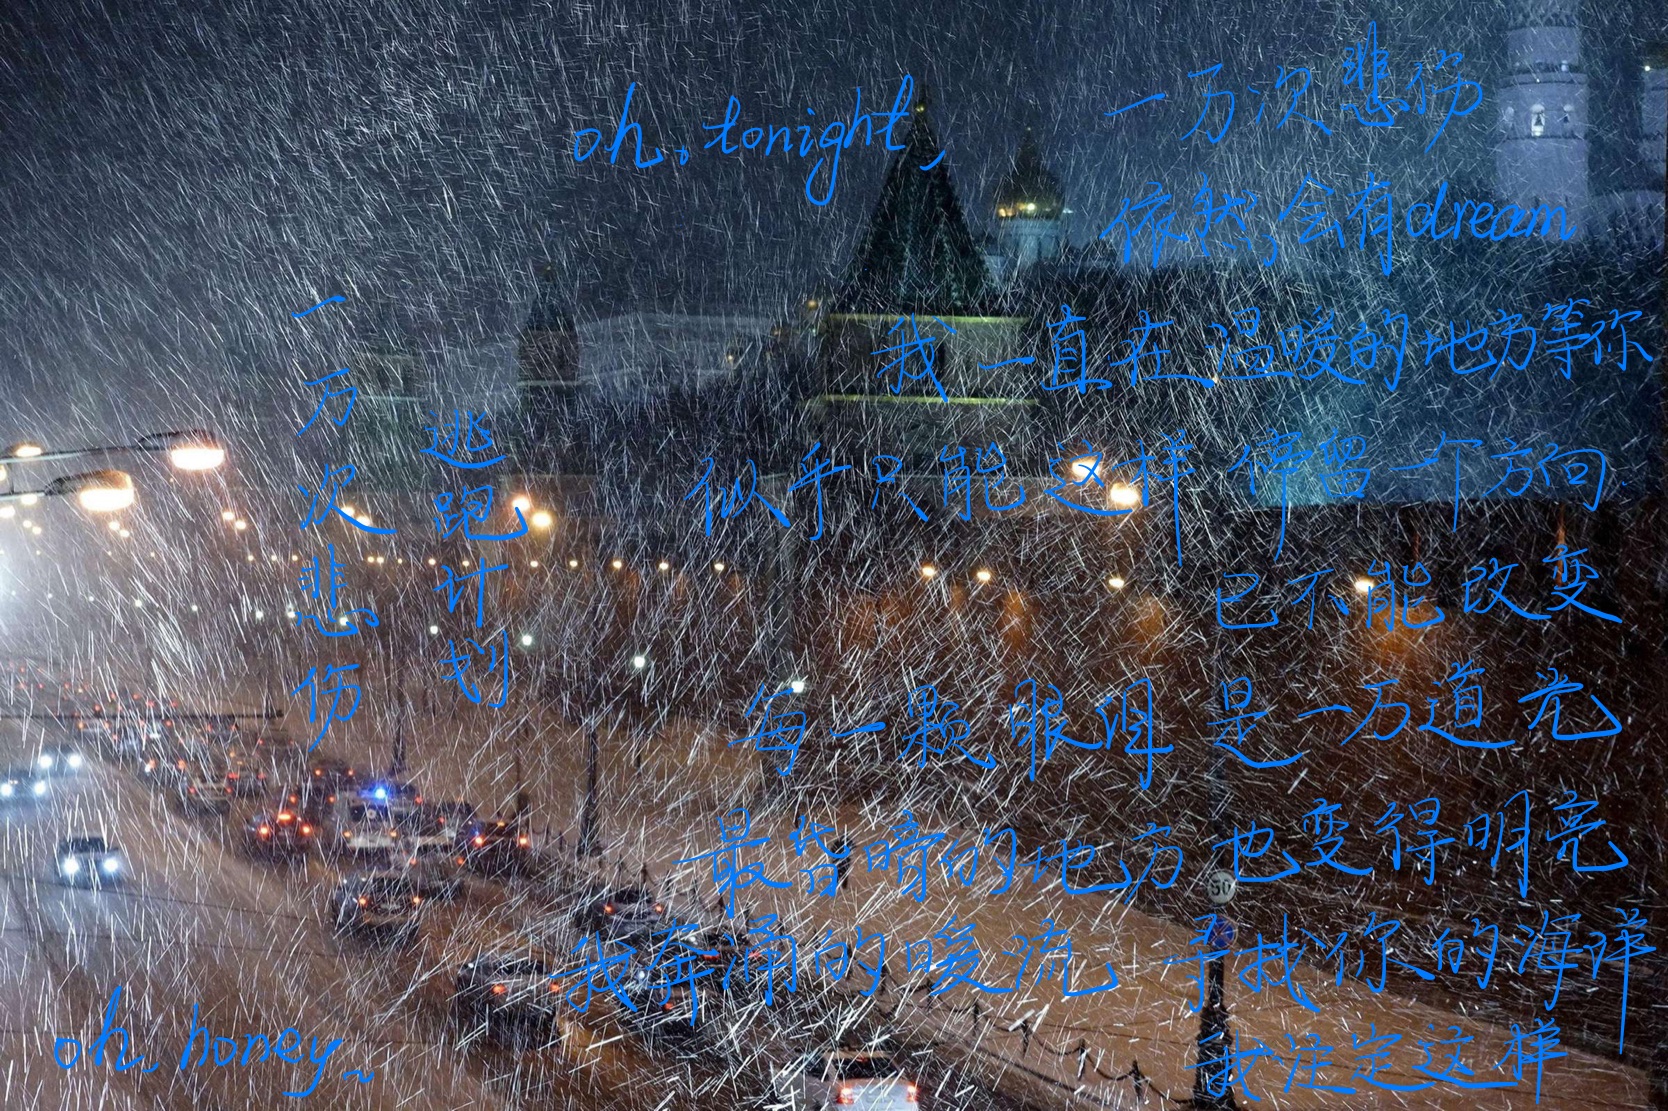 一万次悲伤
逃跑计划
oh, tonight,
一万次悲伤
依然会有dream
我一直在温暖的地方等你
似乎只能这样 停留一个方向
已不能改变
每一颗眼泪是一万道光
最昏暗的地方也变得明亮
我奔涌的暖流，寻找你的海洋
我注定这样
oh, honey~
50